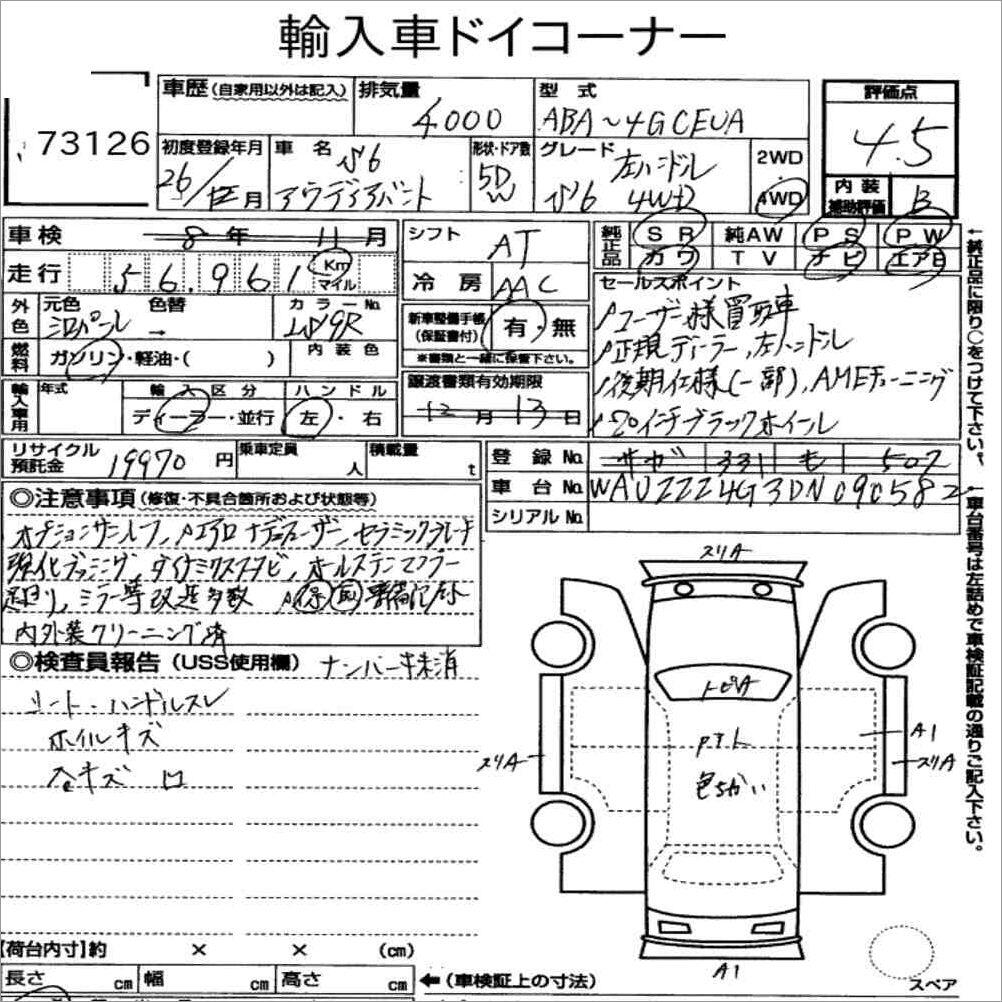 輸入車ドイコーナー
73126
車歴 (自家用以外は記入) 排気量 4000
型式 ABA~4GCEUA
評価点 4.5
初度登録年月 26/12月
車名 S6 アウディアバント
形状・ドア数 5D W
グレード 左ハンドル S6 4WD
2WD 4WD
内装補助評価 B
車検 8年 11月
走行 56,961 Km マイル
シフト AT
冷房 AAC
純正品 SR 純AW PS PW
カワ TV ナビ エアB
外色 元色 色替 カラーNo.
シロパール → LS9R
燃料 ガソリン・軽油・( ) 内装色
新車整備手帳(保証書付) 有・無
※書類と一緒に保管下さい。
セールスポイント
ユーザー様買取車
正規ディーラー,左ハンドル
後期仕様(一部),AMEチューニング
20インチブラックホイール
輸入車用 年式 輸入区分 ハンドル
ディーラー・並行 左・右
譲渡書類有効期限
12月13日
リサイクル預託金 19970円 乗車定員 人 積載量 t
登録No. 331 も 507
車台No. WAUZZZ4G3DN090582
シリアルNo.
←純正品に限り○をつけて下さい。
◎注意事項(修復・不具合箇所および状態等)
オプションサンルーフ,
強化ブッシング,
ミラー等改造多数
内外装クリーニング済
◎検査員報告(USS使用欄) ナンバー抹消
シート・ハンドルスレ
ホイルキズ
小キズ
スリA
トビA
色ちがい
A1
スリA
スリA
A1
スペア
↑車台番号は左詰めで車検証記載の通りご記入下さい。
【荷台内寸】約 × × (cm)
長さ cm 幅 cm 高さ cm ←(車検証上の寸法)